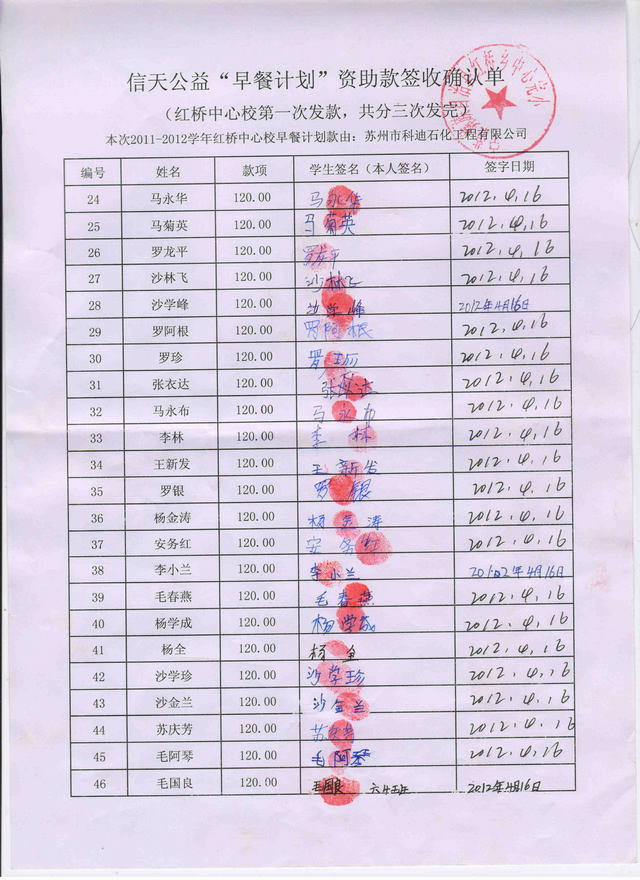 信天公益“早餐计划”资助款签收确认单
（红桥中心校第一次发款，共分三次发完）
本次2011-2012学年红桥中心校早餐计划款由：苏州市科迪石化工程有限公司
编号 姓名 款项 学生签名（本人签名） 签字日期
24 马永华 120.00 马永华 2012.4.16
25 马菊英 120.00 马菊英 2012.4.16
26 罗龙平 120.00 罗龙平 2012.4.16
27 沙林飞 120.00 沙林飞 2012.4.16
28 沙学峰 120.00 沙学峰 2012年4月16日
29 罗阿根 120.00 罗阿根 2012.4.16
30 罗珍 120.00 罗珍 2012.4.16
31 张衣达 120.00 张衣达 2012.4.16
32 马永布 120.00 马永布 2012.4.16
33 李林 120.00 李林 2012.4.16
34 王新发 120.00 王新发 2012.4.16
35 罗银 120.00 罗银 2012.4.16
36 杨金涛 120.00 杨金涛 2012.4.16
37 安务红 120.00 安务红 2012.4.16
38 李小兰 120.00 李小兰 2012年4月16日
39 毛春燕 120.00 毛春燕 2012.4.16
40 杨学成 120.00 杨学成 2012.4.16
41 杨全 120.00 杨全 2012.4.16
42 沙学珍 120.00 沙学珍 2012.4.16
43 沙金兰 120.00 沙金兰 2012.4.16
44 苏庆芳 120.00 苏庆芳 2012.4.16
45 毛阿琴 120.00 毛阿琴 2012.4.16
46 毛国良 120.00 毛国良 2012年4月16日